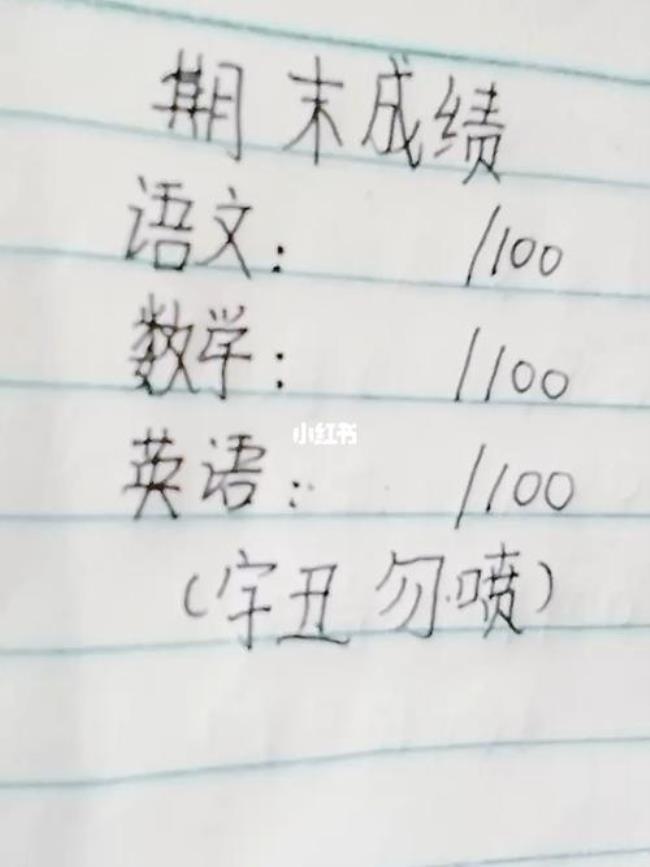 期末成绩
语文: /100
数学: /100
小红书
英语: /100
(字丑勿喷)